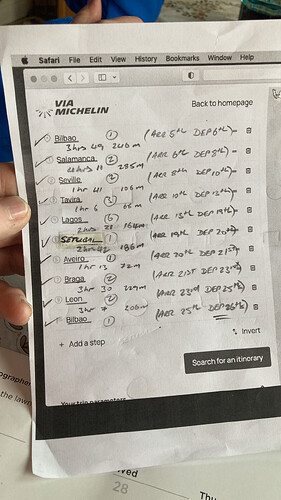 Safari File Edit View History Bookmarks Window Help
VIA
MICHELIN
Back to homepage
Bilbao 1 (ARR 5th DEP 6th)
3 hrs 49 246m
Salamanca 2 (ARR 6th DEP 8th)
285m
Seville 2 (ARR 8th DEP 10th)
1hr 41 106m
Tavira 3 (ARR 10th DEP 13th)
1hr 6 66m
Lagos 6 (ARR 13th DEP 19th)
2hrs 21 164m
SETUBAL 1 (ARR 19th DEP 20th)
2hrs 42 186m
Aveiro 1 (ARR 20th DEP 21st)
1hr 13 72m
Braga 2 (ARR 21st DEP 23rd)
3hr 30 229m
Leon 2 (ARR 23rd DEP 25th)
3hr 7 206m
Bilbao 1 (ARR 25th DEP 26th)
+ Add a step
Invert
Search for an itinerary
Your trip parameters
ographer
the lawn
Wed
Thu
28